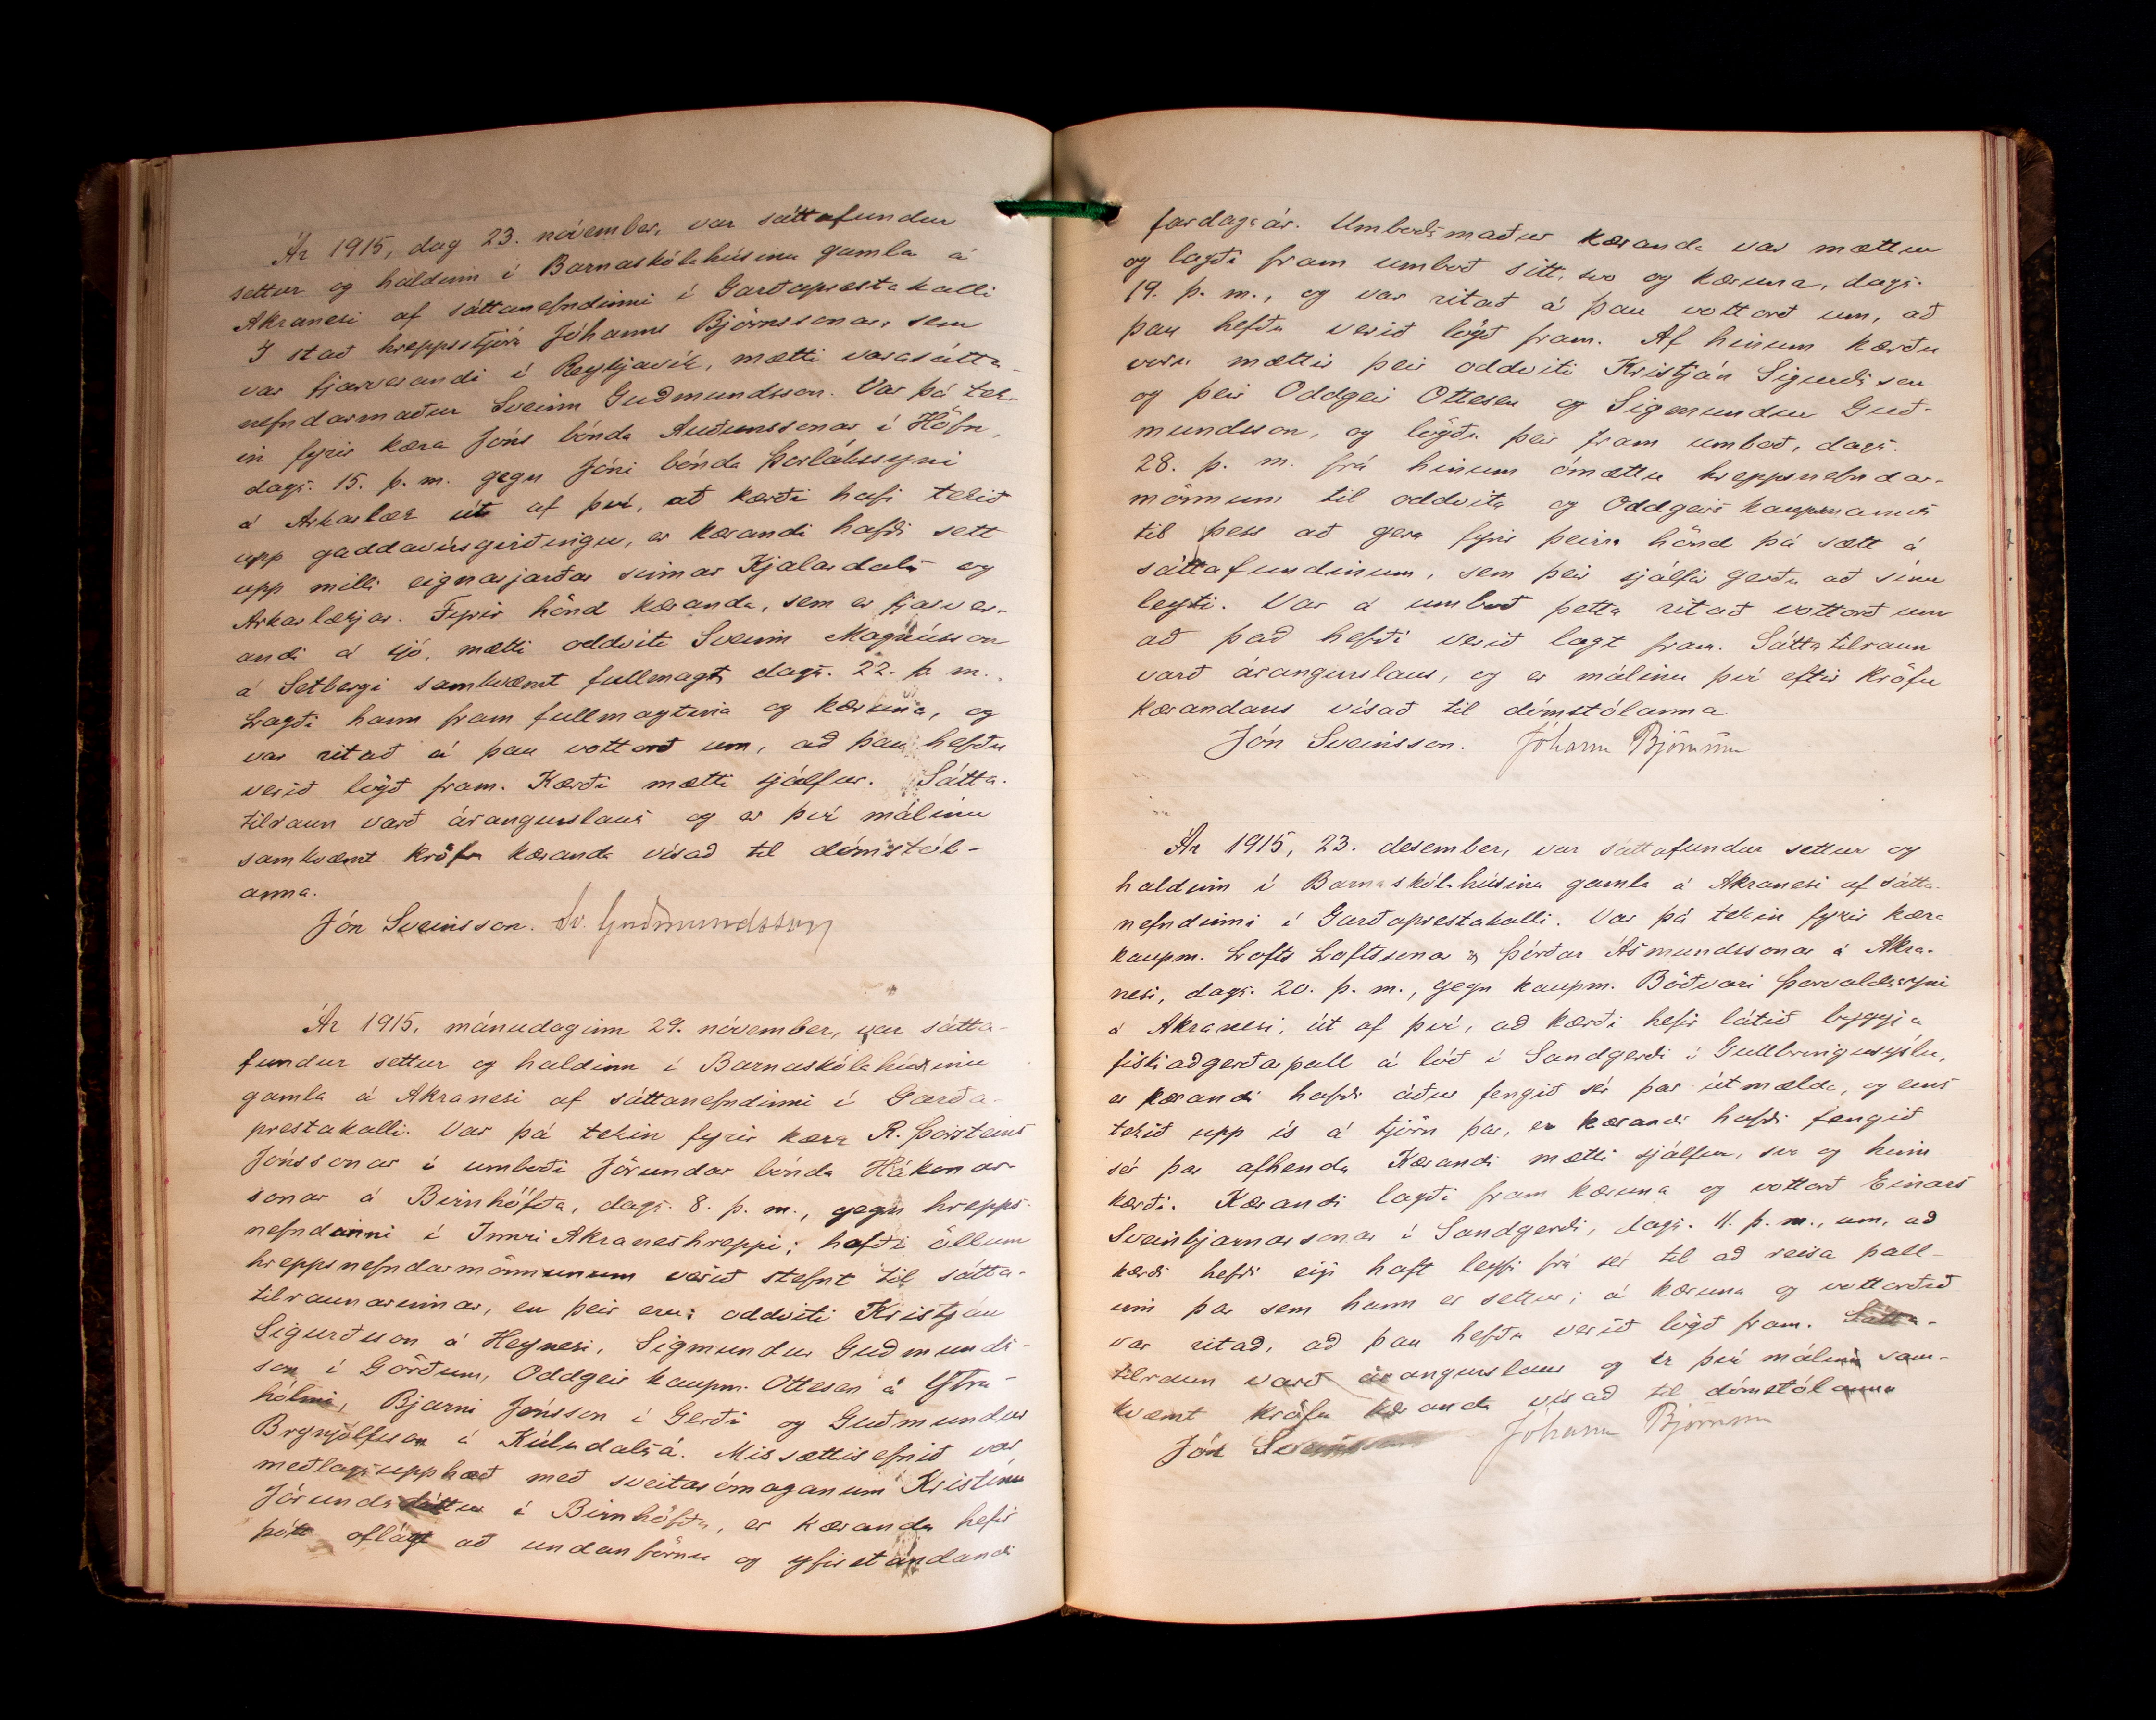 Ár 1915, dag 23. nóvember, var sáttafundur
settur og haldinn í Barnaskólahúsinu gamla á
Akranesi af sáttanefndinni í Garðaprestakalli
Í stað hreppstjóra Jóhanns Björnssonar, sem
var fjarverandi í Reykjavík, mætti varasátta-
nefndarmaður Sveinn Guðmundsson. Var þá tek-
in fyrir kæra Jóns bónda Auðunssonar í Höfn,
dags. 15. þ. m. gegn Jóni bónda Þorlákssyni
á Arkarlæk út af því, að kærði hafi tekið
upp gaddavírsgirðingu, er kærandi hafði sett
upp milli eignarjarðar sinnar Kjalardals og
Arkarlækjar. Fyrir hönd kæranda, sem er fjarver-
andi á sjó, mætti oddviti Sveinn Magnússon
á Setbergi samkvæmt fullmagt, dags. 22. þ. m.
Lagði hann fram fullmagtina og kæruna, og
var ritað á þau vottorð um, að þau hefðu
verið lögð fram. Kærði mætti sjálfur. Sátta-
tilraun varð árangurslaus og er því málinu
samkvæmt kröfu kæranda vísað til dómstól-
anna.
Jón Sveinsson. Sv. Guðmundsson
Ár 1915, mánudaginn 29. nóvember, var sátta-
fundur settur og haldinn í Barnaskólahúsinu
gamla á Akranesi af sáttanefndinni í Garða-
prestakalli. Var þá tekin fyrir kæra R. Þorsteins
Jónssonar í umboði Jörundar bónda Hákonar-
sonar á Birnhöfða, dags. 8. þ. m., gegn hrepps-
nefndinni í Innri Akraneshreppi; hafði öllum
hreppsnefndarmönnunum verið stefnt til sátta-
tilraunarinnar, en þeir eru: oddviti Kristján
Sigurðsson á Heynesi, Sigmundur Guðmunds-
son í Görðum, Oddgeir kaupm. Ottesen á Ytra-
hólmi, Bjarni Jónsson í Gerði og Guðmundur
Brynjólfsson á Kúludalsá. Missættisefnið var
meðlagsupphæð með sveitarómaganum Kristínu
Jörundsdóttur í Birnhöfða, er kæranda hefir
þótt oflágt að undanförnu og yfirstandandi
fardagaár. Umboðsmaður kæranda var mættur
og lagði fram umboð sitt, svo og kæruna, dags.
19. þ. m., og var ritað á þau vottorð um, að
þau hefðu verið lögð fram. Af hinum kærðu
voru mættir þeir oddviti Kristján Sigurðsson
og þeir Oddgeir Ottesen og Sigmundur Guð-
mundsson, og lögðu þeir fram umboð, dags.
28. þ. m. frá hinum ómættu hreppsnefndar-
mönnum til oddvita og Oddgeirs kaupmanns
til þess að gera fyrir þeirra hönd þá sætt á
sáttafundinum, sem þeir sjálfir gerðu að sínu
leyti. Var á umboð þetta ritað vottorð um
að það hefði verið lagt fram. Sáttatilraun
varð árangurslaus, og er málinu því eftir kröfu
kærandans vísað til dómstólanna
Jón Sveinsson. Jóhann Björnsson
Ár 1915, 23. desember, var sáttafundur settur og
haldinn í Barnaskólahúsinu gamla á Akranesi af sátta-
nefndinni í Garðaprestakalli. Var þá tekin fyrir kæra
kaupm. Lofts Loftssonar og Þórðar Ásmundssonar á Akra-
nesi, dags. 20. þ. m., gegn kaupm. Böðvari Þorvaldssyni
á Akranesi, út af því, að kærði hefir látið byggja
fiskiaðgerðapall á lóð í Sandgerði í Gullbringusýslu,
er kærandi hafði áður fengið sér þar útmælda, og eins
tekið upp ís á tjörn þar, er kærandi hafði fengið
sér þar afhenda Kærandi mætti sjálfur, svo og hinn
kærði. Kærandi lagði fram kæruna og vottorð Einars
Sveinbjarnarsonar í Sandgerði, dags. 11. þ. m., um, að
kærði hefði eigi haft leyfi frá sér til að reisa pall-
inn þar sem hann er settur; á kæruna og vottorðið
var ritað, að þau hefðu verið lögð fram. Sátta-
tilraun varð árangurslaus og er því málinu sam-
kvæmt kröfu kæranda vísað til dómstólanna
Jón Sveinsson Jóhann Björnsson